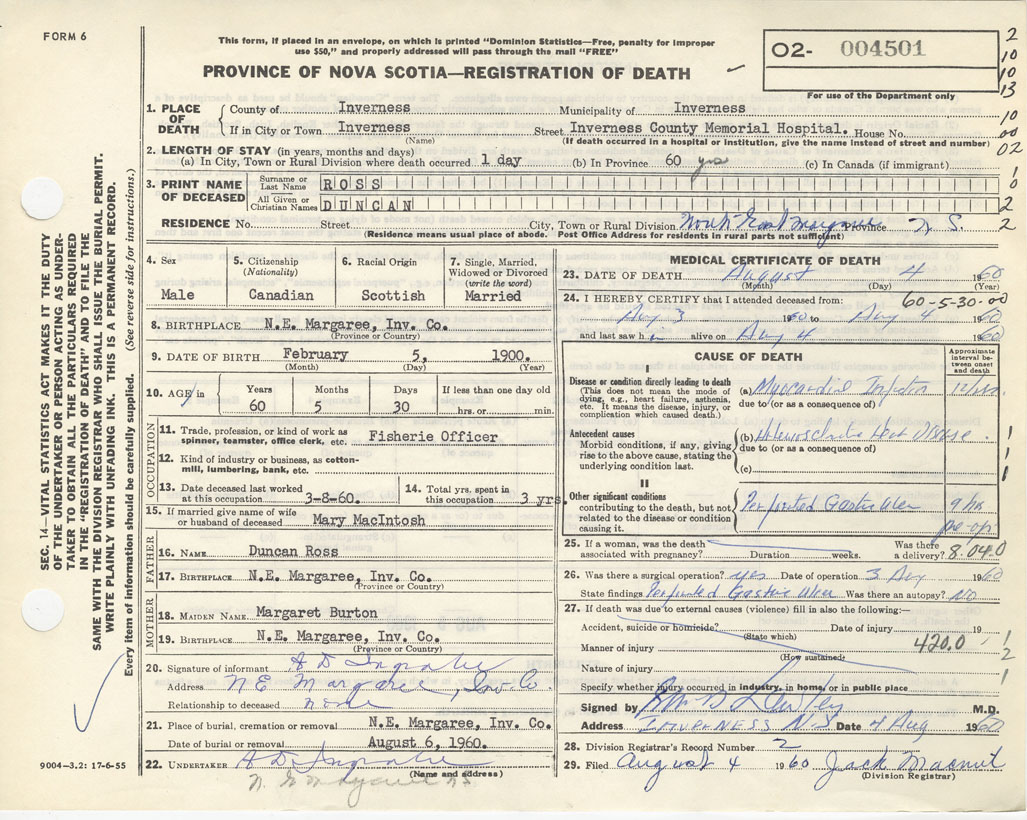 FORM 6
This form, if placed in an envelope, on which is printed "Dominion Statistics—Free, penalty for improper
use $50," and properly addressed will pass through the mail "FREE"
PROVINCE OF NOVA SCOTIA—REGISTRATION OF DEATH
02- 004501
For use of the Department only
2
10
10
13
10
00
02
1
0
2
2
SEC. 14—VITAL STATISTICS ACT MAKES IT THE DUTY
OF THE UNDERTAKER OR PERSON ACTING AS UNDER-
TAKER TO OBTAIN ALL THE PARTICULARS REQUIRED
IN THE "REGISTRATION OF DEATH" AND TO FILE THE
SAME WITH THE DIVISION REGISTRAR WHO SHALL ISSUE THE BURIAL PERMIT.
WRITE PLAINLY WITH UNFADING INK. THIS IS A PERMANENT RECORD.
Every item of information should be carefully supplied. (See reverse side for instructions.)
1. PLACE OF DEATH County of Inverness Municipality of Inverness
If in City or Town Inverness Street Inverness County Memorial Hospital. House No.
(Name) (If death occurred in a hospital or institution, give the name instead of street and number)
2. LENGTH OF STAY (in years, months and days)
(a) In City, Town or Rural Division where death occurred 1 day (b) In Province 60 yrs (c) In Canada (if immigrant)
3. PRINT NAME OF DECEASED
Surname or Last Name ROSS
All Given or Christian Names DUNCAN
RESIDENCE No. Street City, Town or Rural Division North East Margaree Province N. S.
(Residence means usual place of abode. Post Office Address for residents in rural parts not sufficient)
4. Sex
Male
5. Citizenship
(Nationality)
Canadian
6. Racial Origin
Scottish
7. Single, Married,
Widowed or Divorced
(write the word)
Married
8. BIRTHPLACE N.E. Margaree, Inv. Co.
(Province or Country)
9. DATE OF BIRTH February 5, 1900.
(Month) (Day) (Year)
10. AGE in Years Months Days If less than one day old
60 5 30 hrs. or min.
OCCUPATION
11. Trade, profession, or kind of work as
spinner, teamster, office clerk, etc. Fisherie Officer
12. Kind of industry or business, as cotton-
mill, lumbering, bank, etc.
13. Date deceased last worked
at this occupation 3-8-60.
14. Total yrs. spent in
this occupation 3 yrs.
15. If married give name of wife
or husband of deceased Mary MacIntosh
FATHER
16. NAME Duncan Ross
17. BIRTHPLACE N.E. Margaree, Inv. Co.
(Province or Country)
MOTHER
18. MAIDEN NAME Margaret Burton
19. BIRTHPLACE N.E. Margaree, Inv. Co.
(Province or Country)
20. Signature of informant A D
Address N E Margaree, Inv Co
Relationship to deceased none
21. Place of burial, cremation or removal N.E. Margaree, Inv. Co.
Date of burial or removal August 6, 1960.
22. UNDERTAKER A D
(Name and address)
9004-3.2: 17-6-55
MEDICAL CERTIFICATE OF DEATH
23. DATE OF DEATH August 4 1960
(Month) (Day) (Year)
24. I HEREBY CERTIFY that I attended deceased from: 60-5-30-00
Aug 3 1960 to Aug 4 1960
and last saw him alive on Aug 4 1960
CAUSE OF DEATH
Approximate
interval between
onset
and death
I
Disease or condition directly leading to death
(This does not mean the mode of
dying, e.g., heart failure, asthenia,
etc. It means the disease, injury, or
complication which caused death.)
(a) Myocardial
due to (or as a consequence of)
Antecedent causes
Morbid conditions, if any, giving
rise to the above cause, stating the
underlying condition last.
(b) Heart Disease
due to (or as a consequence of)
(c)
1
1
1
II
Other significant conditions
contributing to the death, but not
related to the disease or condition
causing it.
Perforated Gastric Ulcer 9 hrs
pre-op.
25. If a woman, was the death
associated with pregnancy? Duration weeks. Was there
a delivery? 8.04.0
26. Was there a surgical operation? yes Date of operation 3 Aug 1960
State findings Perforated Gastric Ulcer Was there an autopsy? No
27. If death was due to external causes (violence) fill in also the following:—
Accident, suicide or homicide? Date of injury 19
(State which)
Manner of injury 420.0
(How sustained)
1
2
Nature of injury
Specify whether injury occurred in industry, in home, or in public place
Signed by M.D.
Address INVERNESS N.S Date 4 Aug 1960
28. Division Registrar's Record Number 2
29. Filed August 4 1960 Jack Macnut
(Division Registrar)